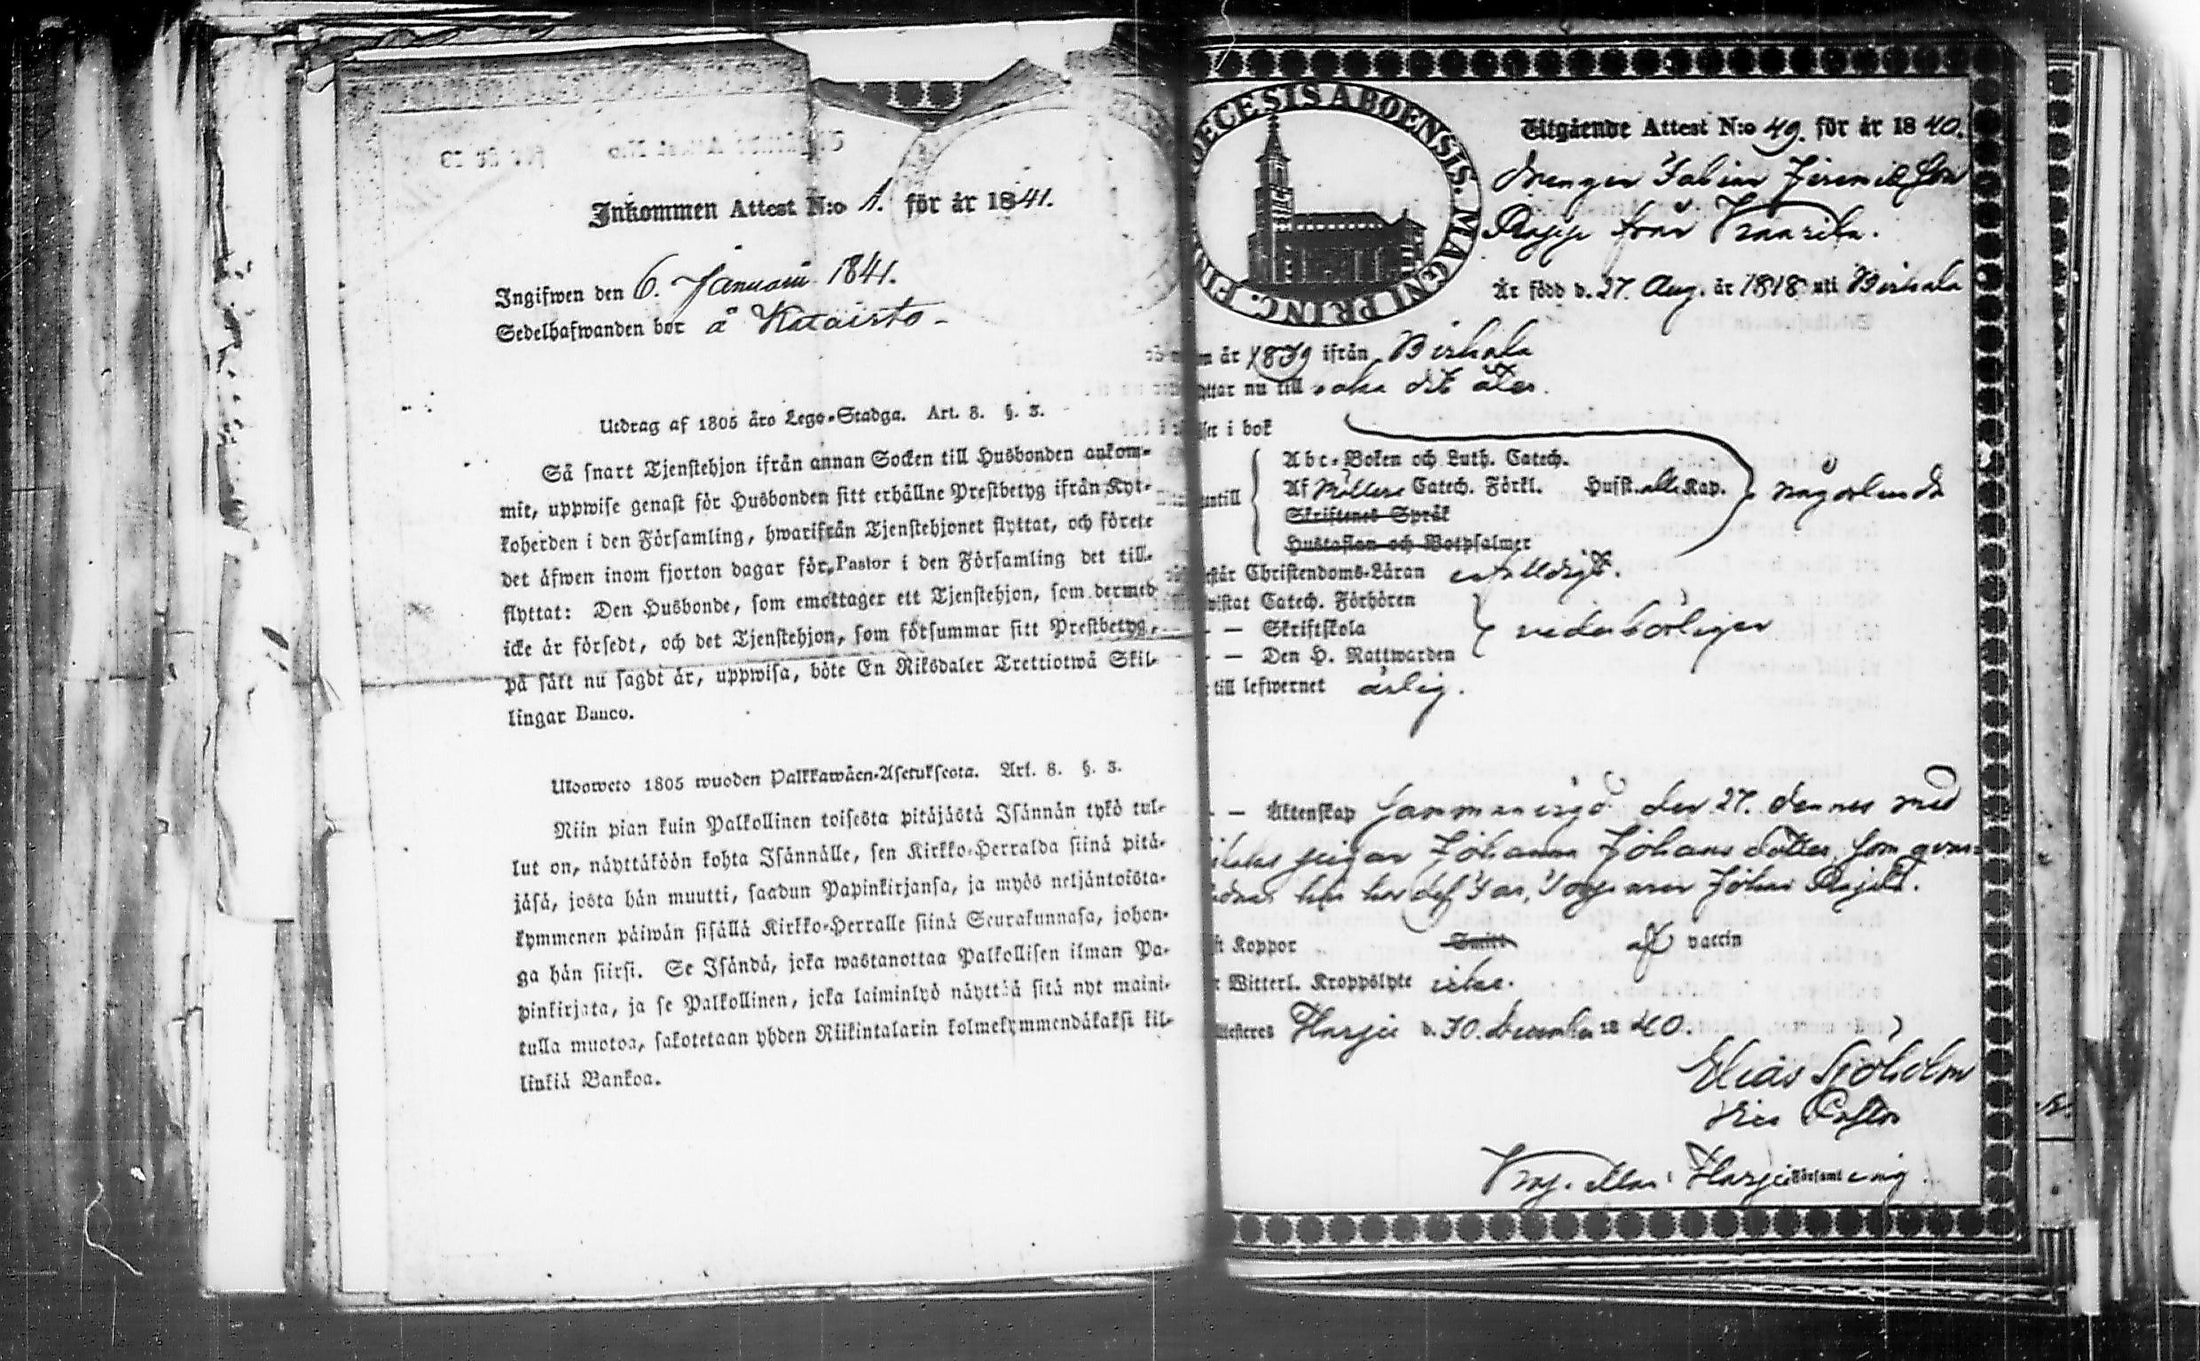 Inkommen Attest N:o 1. för år 1841.
Ingifwen den 6. Januarii 1841.
Sedelhafwanden bor å Kataisto
Utdrag af 1805 åro Lego-Stadga. Art. 8. §. 3.
Så snart Tjenstehjon ifrån annan Socken till Husbonden ankom-
mit, uppwise genast för Husbonden sitt erhållne Prestbetyg ifrån Kyr-
koherden i den Församling, hwarifrån Tjenstehjonet flyttat, och förete
det äfwen inom fjorton dagar för Pastor i den Församling det till-
flyttat: Den Husbonde, som emottager ett Tjenstehjon, som dermed
icke är försedt, och det Tjenstehjon, som försummar sitt Prestbetyg,
på sätt nu sagdt är, uppwisa, böte En Riksdaler Trettiotwå Skil-
lingar Banco.
Uloswето 1805 wuoden Palkkawäen-Asetuksesta. Art. 8. §. 3.
Niin pian kuin Palkollinen toisesta pitäjästä Isännän tykö tul-
lut on, näyttäköön kohta Isännälle, sen Kirkko-Herralda siinä pitä-
jäsä, josta hän muutti, saadun Papinkirjansa, ja myös neljäntoista-
kymmenen päiwän sisällä Kirkko-Herralle siinä Seurakunnasa, johon-
ga hän siirsi. Se Isändä, joka wastanottaa Palkollisen ilman Pa-
pinkirjata, ja se Palkollinen, joka laiminlyö näyttää sitä nyt maini-
tulla muotoa, sakotetaan yhden Riikintalarin kolmekymmendäkaksi kil-
linkiä Bankoa.
DIOECESIS ABOENSIS. MAGNI PRING. FI
Utgående Attest N:o 49. för år 1840.
Drengen Fabian Jeremiæ Son
från Kaarila.
Är född d. 27. Aug. år 1818 uti Birkala
år 1839 ifrån Birkala
nu till dit åter.
i bok
Abc-Boken och Luth. Catech.
Af Möllers Catech. Förkl. Husst. alla Kap. någorlunda
Skriftenes Språk
Hustaflan och Botpsalmer
Christendoms-Läran
Catech. Förhören
— Skriftskola wederbörligen
— Den H. Nattwarden
till lefwernet ärlig.
— Äktenskap den 27. dennes med
pigan Johanna Johansdotter som
Koppor Smitt af vaccin
Witterl. Kroppslyte icke.
Harju d. 30. December 1840.
Elias Sjöholm
Vice Pastor
i Harju Församling.